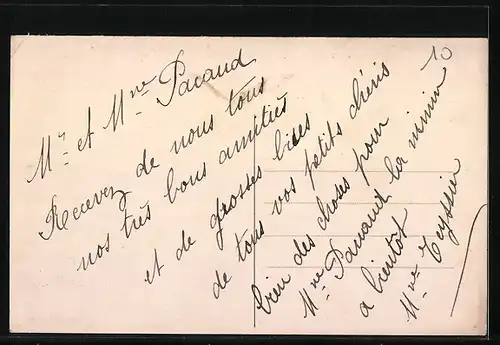 10
Mr et Mme Pacaud
Recevez de nous tous
nos très bons amitiés
et de grosses bises
de tous vos petits chéris
bien des choses pour
Mme Panaud la mimin
a bientot
Mme Teyssier